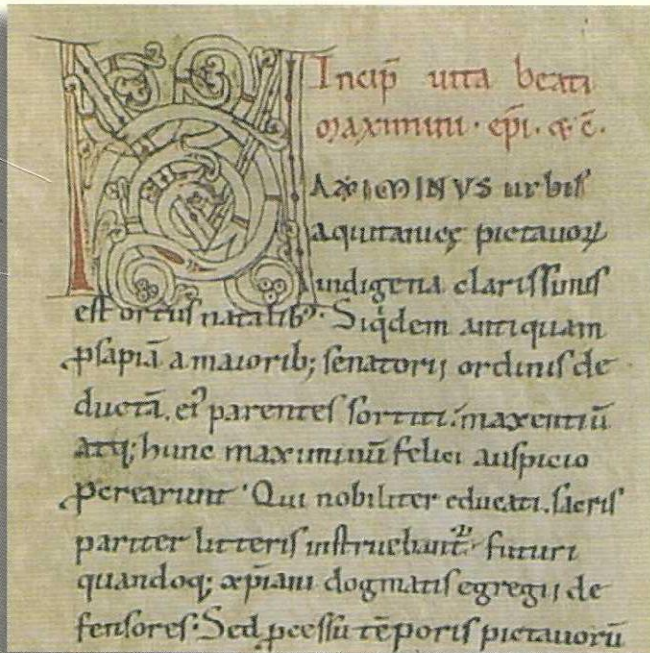 Incip̄ uita beati
maximini · ep̄i · & c̄.
MAXIMINVS urbis
aquitanicę pictauoꝝ
indigena clarissimis
est ortus natalibꝰ. Siqͥdem antiquam
ꝓsapiā a maiorib; senatorij ordinis de
ductā. eiꝰ parentes sortiti. maxentiū
atq; hunc maximinū felici auspicio
ꝓcrearunt. Qui nobiliter educati. sacris
pariter litteris instruebant᷑. futuri
quandoq; xp̄iani dogmatis egregij de
fensores. Sed ꝓcessu tēporis pictauorū